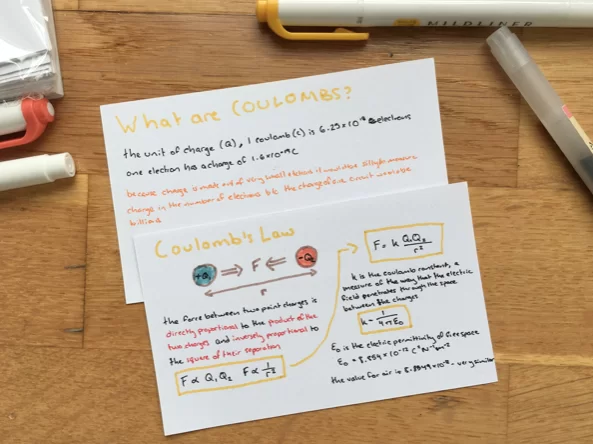 MILDLINER
What are COULOMBS?
the unit of charge (Q), 1 coulomb (C) is 6.25 x 10^18 electrons
one electron has a charge of 1.6 x 10^-19 C
because charge is made out of very small electrons it would be silly to measure
charge in the number of electrons b/c the charge of a circuit would be
billions
Coulomb's Law
+Q₁ ⇒ F ⇐ -Q₂
r
the force between two point charges is
directly proportional to the product of the
two charges and inversely proportional to
the square of their separation
F ∝ Q₁Q₂ F ∝ 1/r²
F = k Q₁Q₂/r²
k is the coulomb constant, a
measure of the way that the electric
field penetrates through the space
between the charges
k = 1/4πE₀
E₀ is the electric permittivity of free space
E₀ = 8.854 x 10^-12 C² N^-1 m^-2
the value for air is - very similar